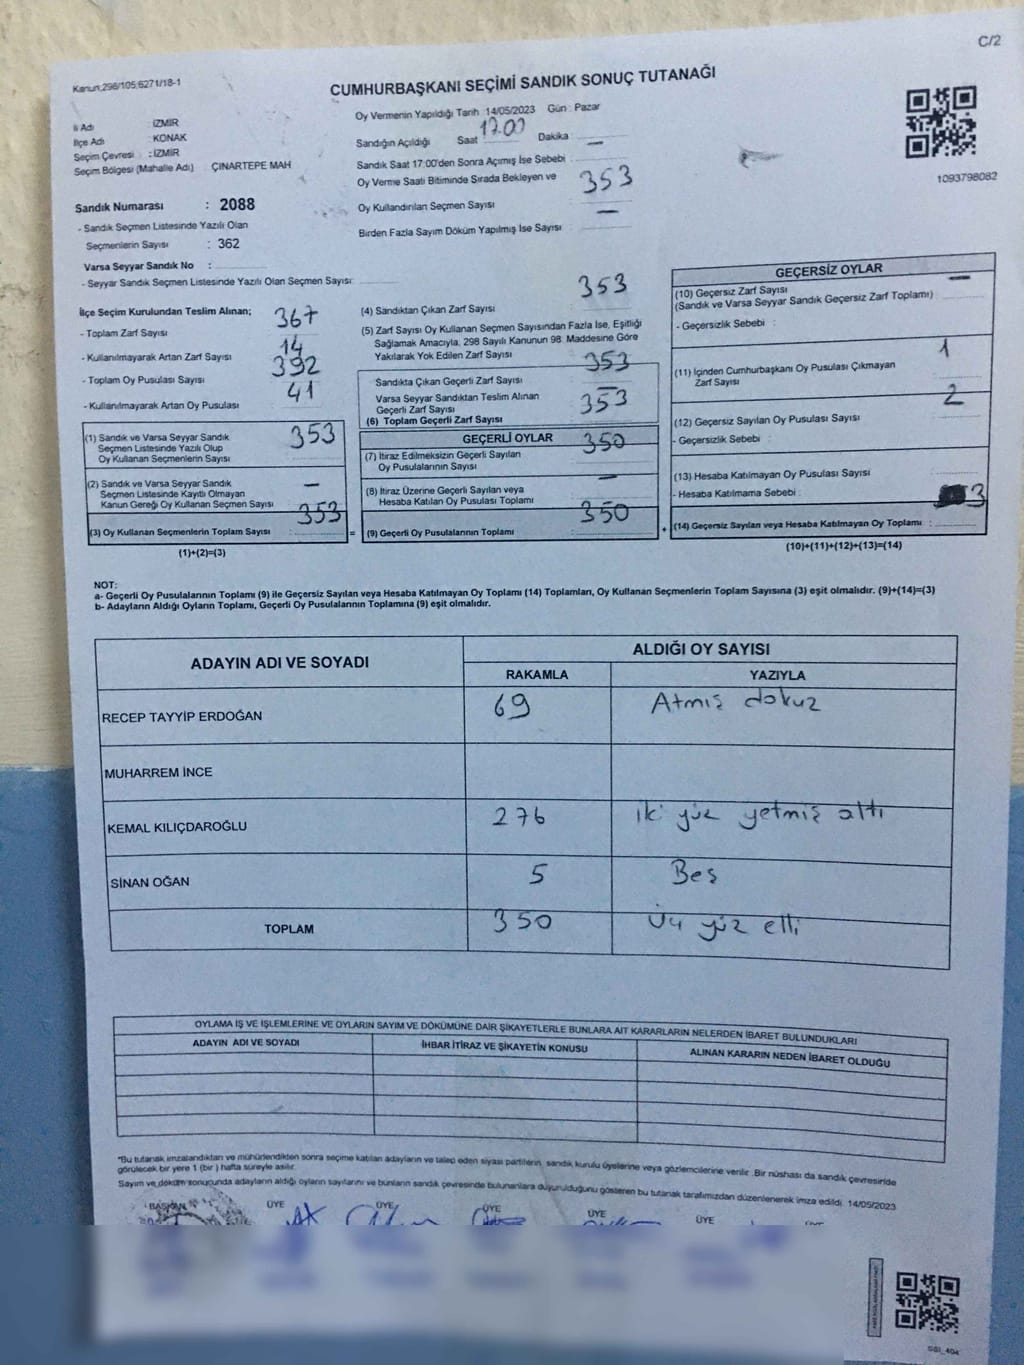 C/2
Kanun;298/105;6271/18-1
CUMHURBAŞKANI SEÇİMİ SANDIK SONUÇ TUTANAĞI
İl Adı : İZMİR
İlçe Adı : KONAK
Seçim Çevresi : İZMİR
Seçim Bölgesi (Mahalle Adı) ÇINARTEPE MAH
Sandık Numarası : 2088
- Sandık Seçmen Listesinde Yazılı Olan
Seçmenlerin Sayısı : 362
Varsa Seyyar Sandık No :
- Seyyar Sandık Seçmen Listesinde Yazılı Olan Seçmen Sayısı:
Oy Vermenin Yapıldığı Tarih 14/05/2023 Gün : Pazar
Sandığın Açıldığı Saat 17.00 Dakika : —
Sandık Saat 17:00'den Sonra Açımış İse Sebebi :
Oy Verme Saati Bitiminde Sırada Bekleyen ve
Oy Kullandırılan Seçmen Sayısı : 353
Birden Fazla Sayım Döküm Yapılmış İse Sayısı : —
1093798082
İlçe Seçim Kurulundan Teslim Alınan;
- Toplam Zarf Sayısı : 367
- Kullanılmayarak Artan Zarf Sayısı : 14
- Toplam Oy Pusulası Sayısı : 392
- Kullanılmayarak Artan Oy Pusulası : 41
(1) Sandık ve Varsa Seyyar Sandık
Seçmen Listesinde Yazılı Olup
Oy Kullanan Seçmenlerin Sayısı : 353
(2) Sandık ve Varsa Seyyar Sandık
Seçmen Listesinde Kayıtlı Olmayan
Kanun Gereği Oy Kullanan Seçmen Sayısı : —
(3) Oy Kullanan Seçmenlerin Toplam Sayısı : 353
(1)+(2)=(3)
(4) Sandıktan Çıkan Zarf Sayısı 353
(5) Zarf Sayısı Oy Kullanan Seçmen Sayısından Fazla İse, Eşitliği
Sağlamak Amacıyla, 298 Sayılı Kanunun 98. Maddesine Göre
Yakılarak Yok Edilen Zarf Sayısı
Sandıkta Çıkan Geçerli Zarf Sayısı 353
Varsa Seyyar Sandıktan Teslim Alınan
Geçerli Zarf Sayısı —
(6) Toplam Geçerli Zarf Sayısı 353
GEÇERLİ OYLAR
(7) İtiraz Edilmeksizin Geçerli Sayılan
Oy Pusulalarının Sayısı 350
(8) İtiraz Üzerine Geçerli Sayılan veya
Hesaba Katılan Oy Pusulası Toplamı —
= (9) Geçerli Oy Pusulalarının Toplamı 350
GEÇERSİZ OYLAR
(10) Geçersiz Zarf Sayısı —
(Sandık ve Varsa Seyyar Sandık Geçersiz Zarf Toplamı)
- Geçersizlik Sebebi :
(11) İçinden Cumhurbaşkanı Oy Pusulası Çıkmayan
Zarf Sayısı 1
(12) Geçersiz Sayılan Oy Pusulası Sayısı 2
- Geçersizlik Sebebi :
(13) Hesaba Katılmayan Oy Pusulası Sayısı
- Hesaba Katılmama Sebebi :
+ (14) Geçersiz Sayılan veya Hesaba Katılmayan Oy Toplamı : 3
(10)+(11)+(12)+(13)=(14)
NOT:
a- Geçerli Oy Pusulalarının Toplamı (9) ile Geçersiz Sayılan veya Hesaba Katılmayan Oy Toplamı (14) Toplamları, Oy Kullanan Seçmenlerin Toplam Sayısına (3) eşit olmalıdır. (9)+(14)=(3)
b- Adayların Aldığı Oyların Toplamı, Geçerli Oy Pusulalarının Toplamına (9) eşit olmalıdır.
ADAYIN ADI VE SOYADI ALDIĞI OY SAYISI
RAKAMLA YAZIYLA
RECEP TAYYİP ERDOĞAN 69 Atmış dokuz
MUHARREM İNCE
KEMAL KILIÇDAROĞLU 276 iki yüz yetmiş altı
SİNAN OĞAN 5 Beş
TOPLAM 350 Üç yüz elli
OYLAMA İŞ VE İŞLEMLERİNE VE OYLARIN SAYIM VE DÖKÜMÜNE DAİR ŞİKAYETLERLE BUNLARA AİT KARARLARIN NELERDEN İBARET BULUNDUKLARI
ADAYIN ADI VE SOYADI İHBAR İTİRAZ VE ŞİKAYETİN KONUSU ALINAN KARARIN NEDEN İBARET OLDUĞU
*Bu tutanak imzalandıktan ve mühürlendikten sonra seçime katılan adayların ve talep eden siyasi partilerin, sandık kurulu üyelerine veya gözlemcilerine verilir. Bir nüshası da sandık çevresinde
görülecek bir yere 1 (bir ) hafta süreyle asılır.
Sayım ve döküm sonucunda adayların aldığı oyların sayılarını ve bunların sandık çevresinde bulunanlara duyurulduğunu gösteren bu tutanak tarafımızdan düzenlenerek imza edildi. 14/05/2023
BAŞKAN ÜYE ÜYE ÜYE ÜYE ÜYE